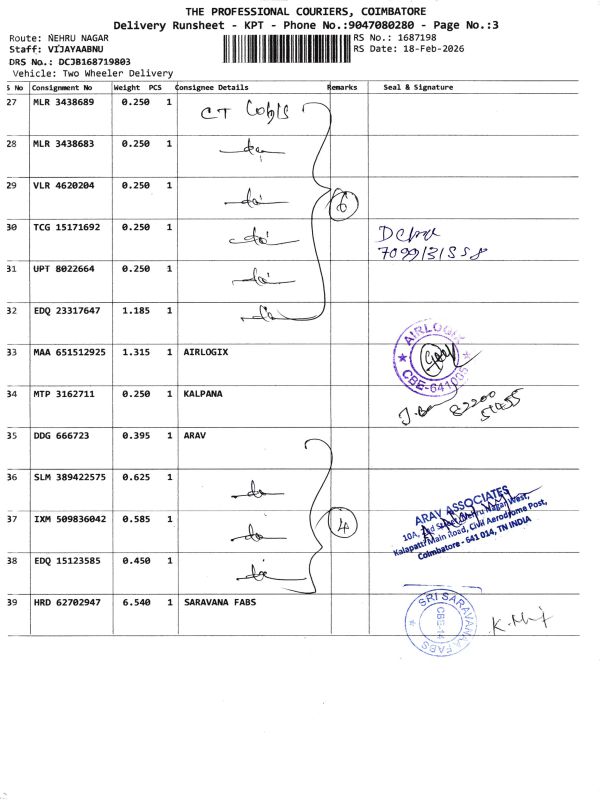 THE PROFESSIONAL COURIERS, COIMBATORE
Delivery Runsheet - KPT - Phone No.:9047080280 - Page No.:3
Route: NEHRU NAGAR
RS No.: 1687198
Staff: VIJAYAABNU
RS Date: 18-Feb-2026
DRS No.: DCJB168719803
Vehicle: Two Wheeler Delivery
S No Consignment No Weight PCS Consignee Details Remarks Seal & Signature
27 MLR 3438689 0.250 1 CT
28 MLR 3438683 0.250 1 do
29 VLR 4620204 0.250 1 do 6
30 TCG 15171692 0.250 1 do
31 UPT 8022664 0.250 1 do
32 EDQ 23317647 1.185 1 do
33 MAA 651512925 1.315 1 AIRLOGIX
AIRLOGIX
CBE-641005
34 MTP 3162711 0.250 1 KALPANA
82200
35 DDG 666723 0.395 1 ARAV
36 SLM 389422575 0.625 1 do
37 IXM 509836042 0.585 1 do 4
ARAV ASSOCIATES
10A, 2nd Street, Nehru Nagar West,
Kalapatti Main Road, Civil Aerodrome Post,
Coimbatore - 641 014, TN INDIA
38 EDQ 15123585 0.450 1 do
39 HRD 62702947 6.540 1 SARAVANA FABS
SRI SARAVANA FABS
CBE-14